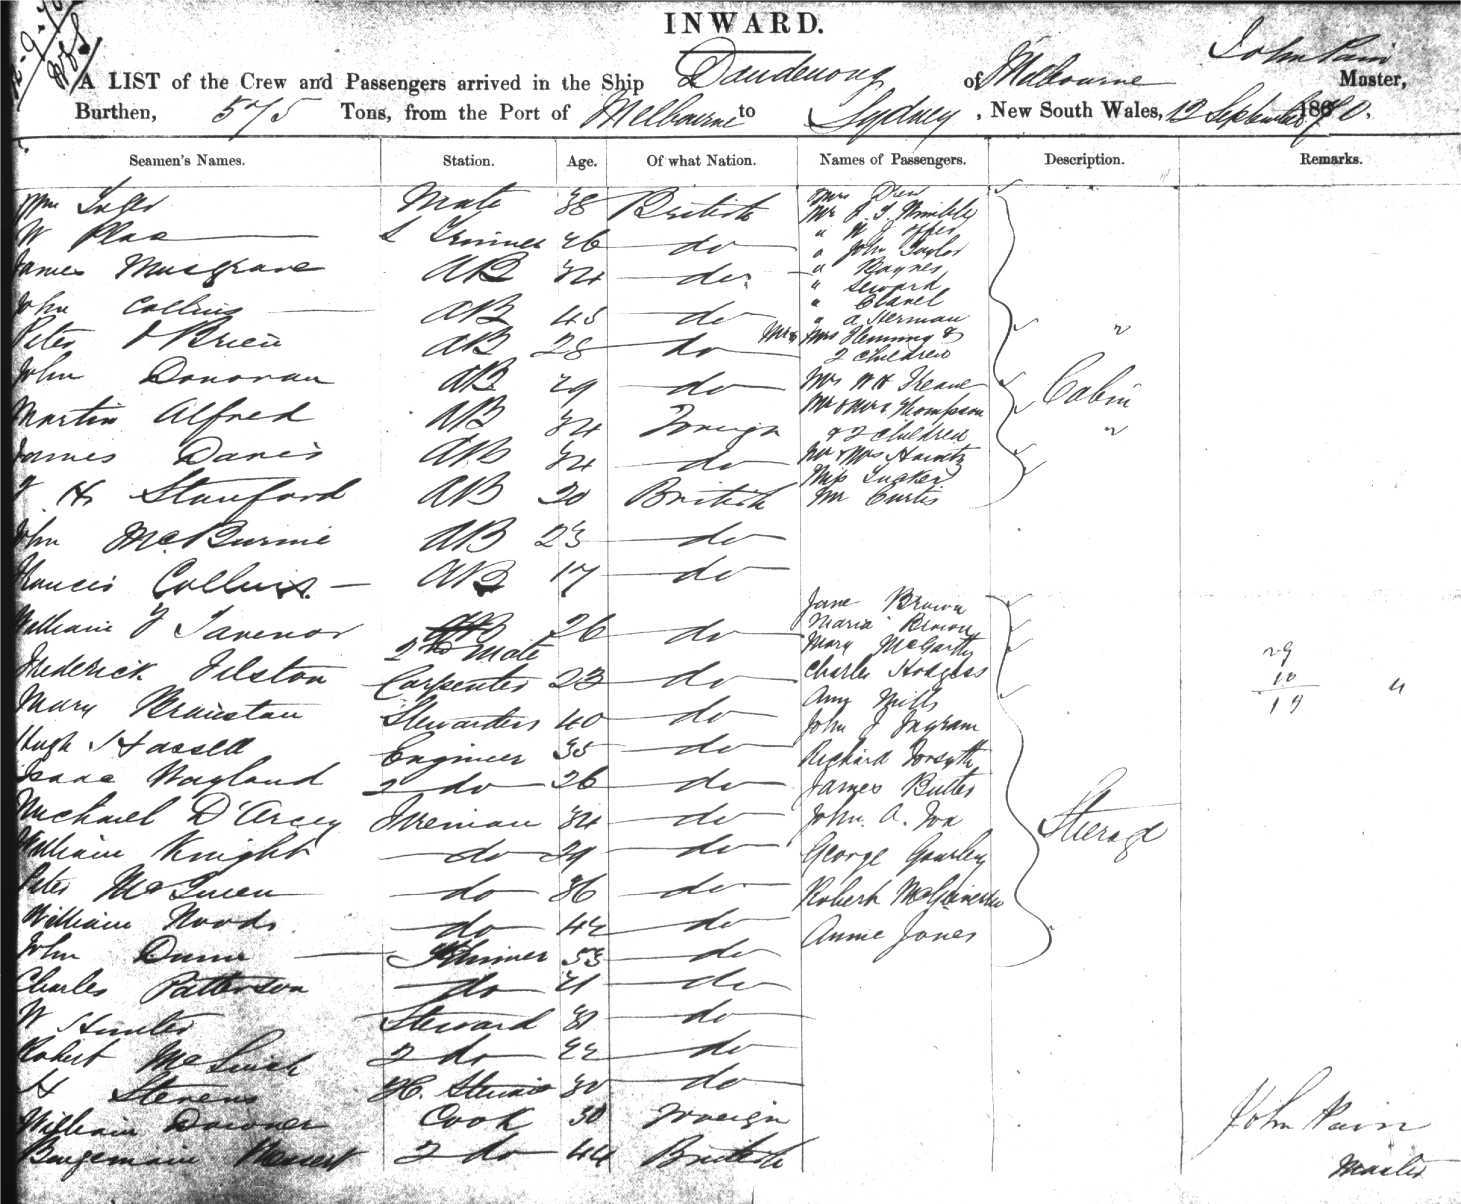 INWARD.
John Pain
A LIST of the Crew and Passengers arrived in the Ship Dandenong of Melbourne Master,
Burthen, 575 Tons, from the Port of Melbourne to Sydney, New South Wales, 12 September 1870.
Seamen's Names. Station. Age. Of what Nation. Names of Passengers. Description. Remarks.
Wm Mate 38 British Mrs Drew
W 26 do Mr
James Musgrave AB 34 do " John Taylor
" Raynes
" Seward
John Collins AB 45 do " Clavel
" A Herman
Peter O'Brien AB 28 do Mr & Mrs Fleming &
2 children
John Donovan AB 29 do Mrs W H Cabin
Martin Alfred AB 34 Foreign Mr & Mrs Thompson
& 2 children
James Davis AB 34 do Mr & Mrs
Miss Tucker
H Stanford AB 20 British Mr Curtis
John McBurnie AB 23 do
Francis Collins AB 17 do
Jane Brown
William F Tavenor AB 26 do Maria Brown
2nd Mate Mary McCarthy
Frederick Tilston Carpenter 23 do Charles Hodgess 29
Amy Mills 10
Mary Stewardess 40 do John J Ingram 19
Hugh Hassell Engineer 35 do Richard Forsyth
Isaac Wayland 2 do 26 do James Butler
Michael D'Arcey Fireman 34 do John A. Fox Steerage
William Knight do 29 do George Gourley
Peter do 36 do Robert
William Woods do 42 do Annie Jones
John Dunn Trimmer 53 do
Charles Patterson do 21 do
W Hunter Steward 37 do
Robert 2 do 22 do
H Stevens 30 do
William Downer Cook 38 Foreign John Pain
Bengemain 2 do 44 British Master